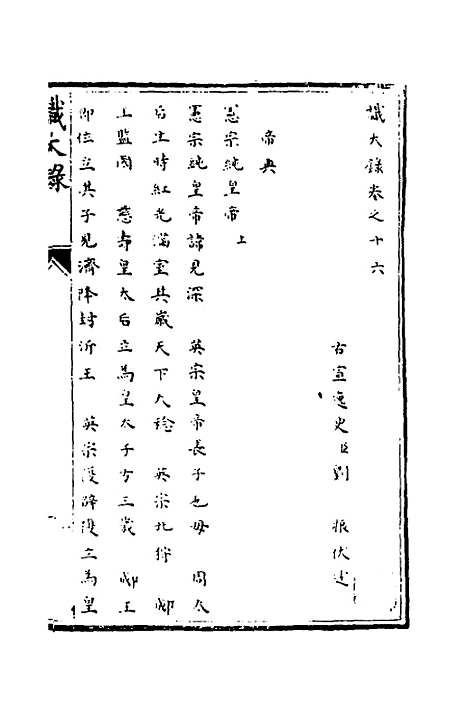 識大錄卷之十六
古宣逸史臣劉 振伏述
帝典
憲宗純皇帝 上
憲宗純皇帝諱見深 英宗皇帝長子也母 周太
后生時紅光滿室其歲天下大稔 英宗北狩 郕
王監國 慈壽皇太后立為皇太子方三歲 郕王
即位立其子見濟降封沂王 英宗復辟復立為皇
識大錄